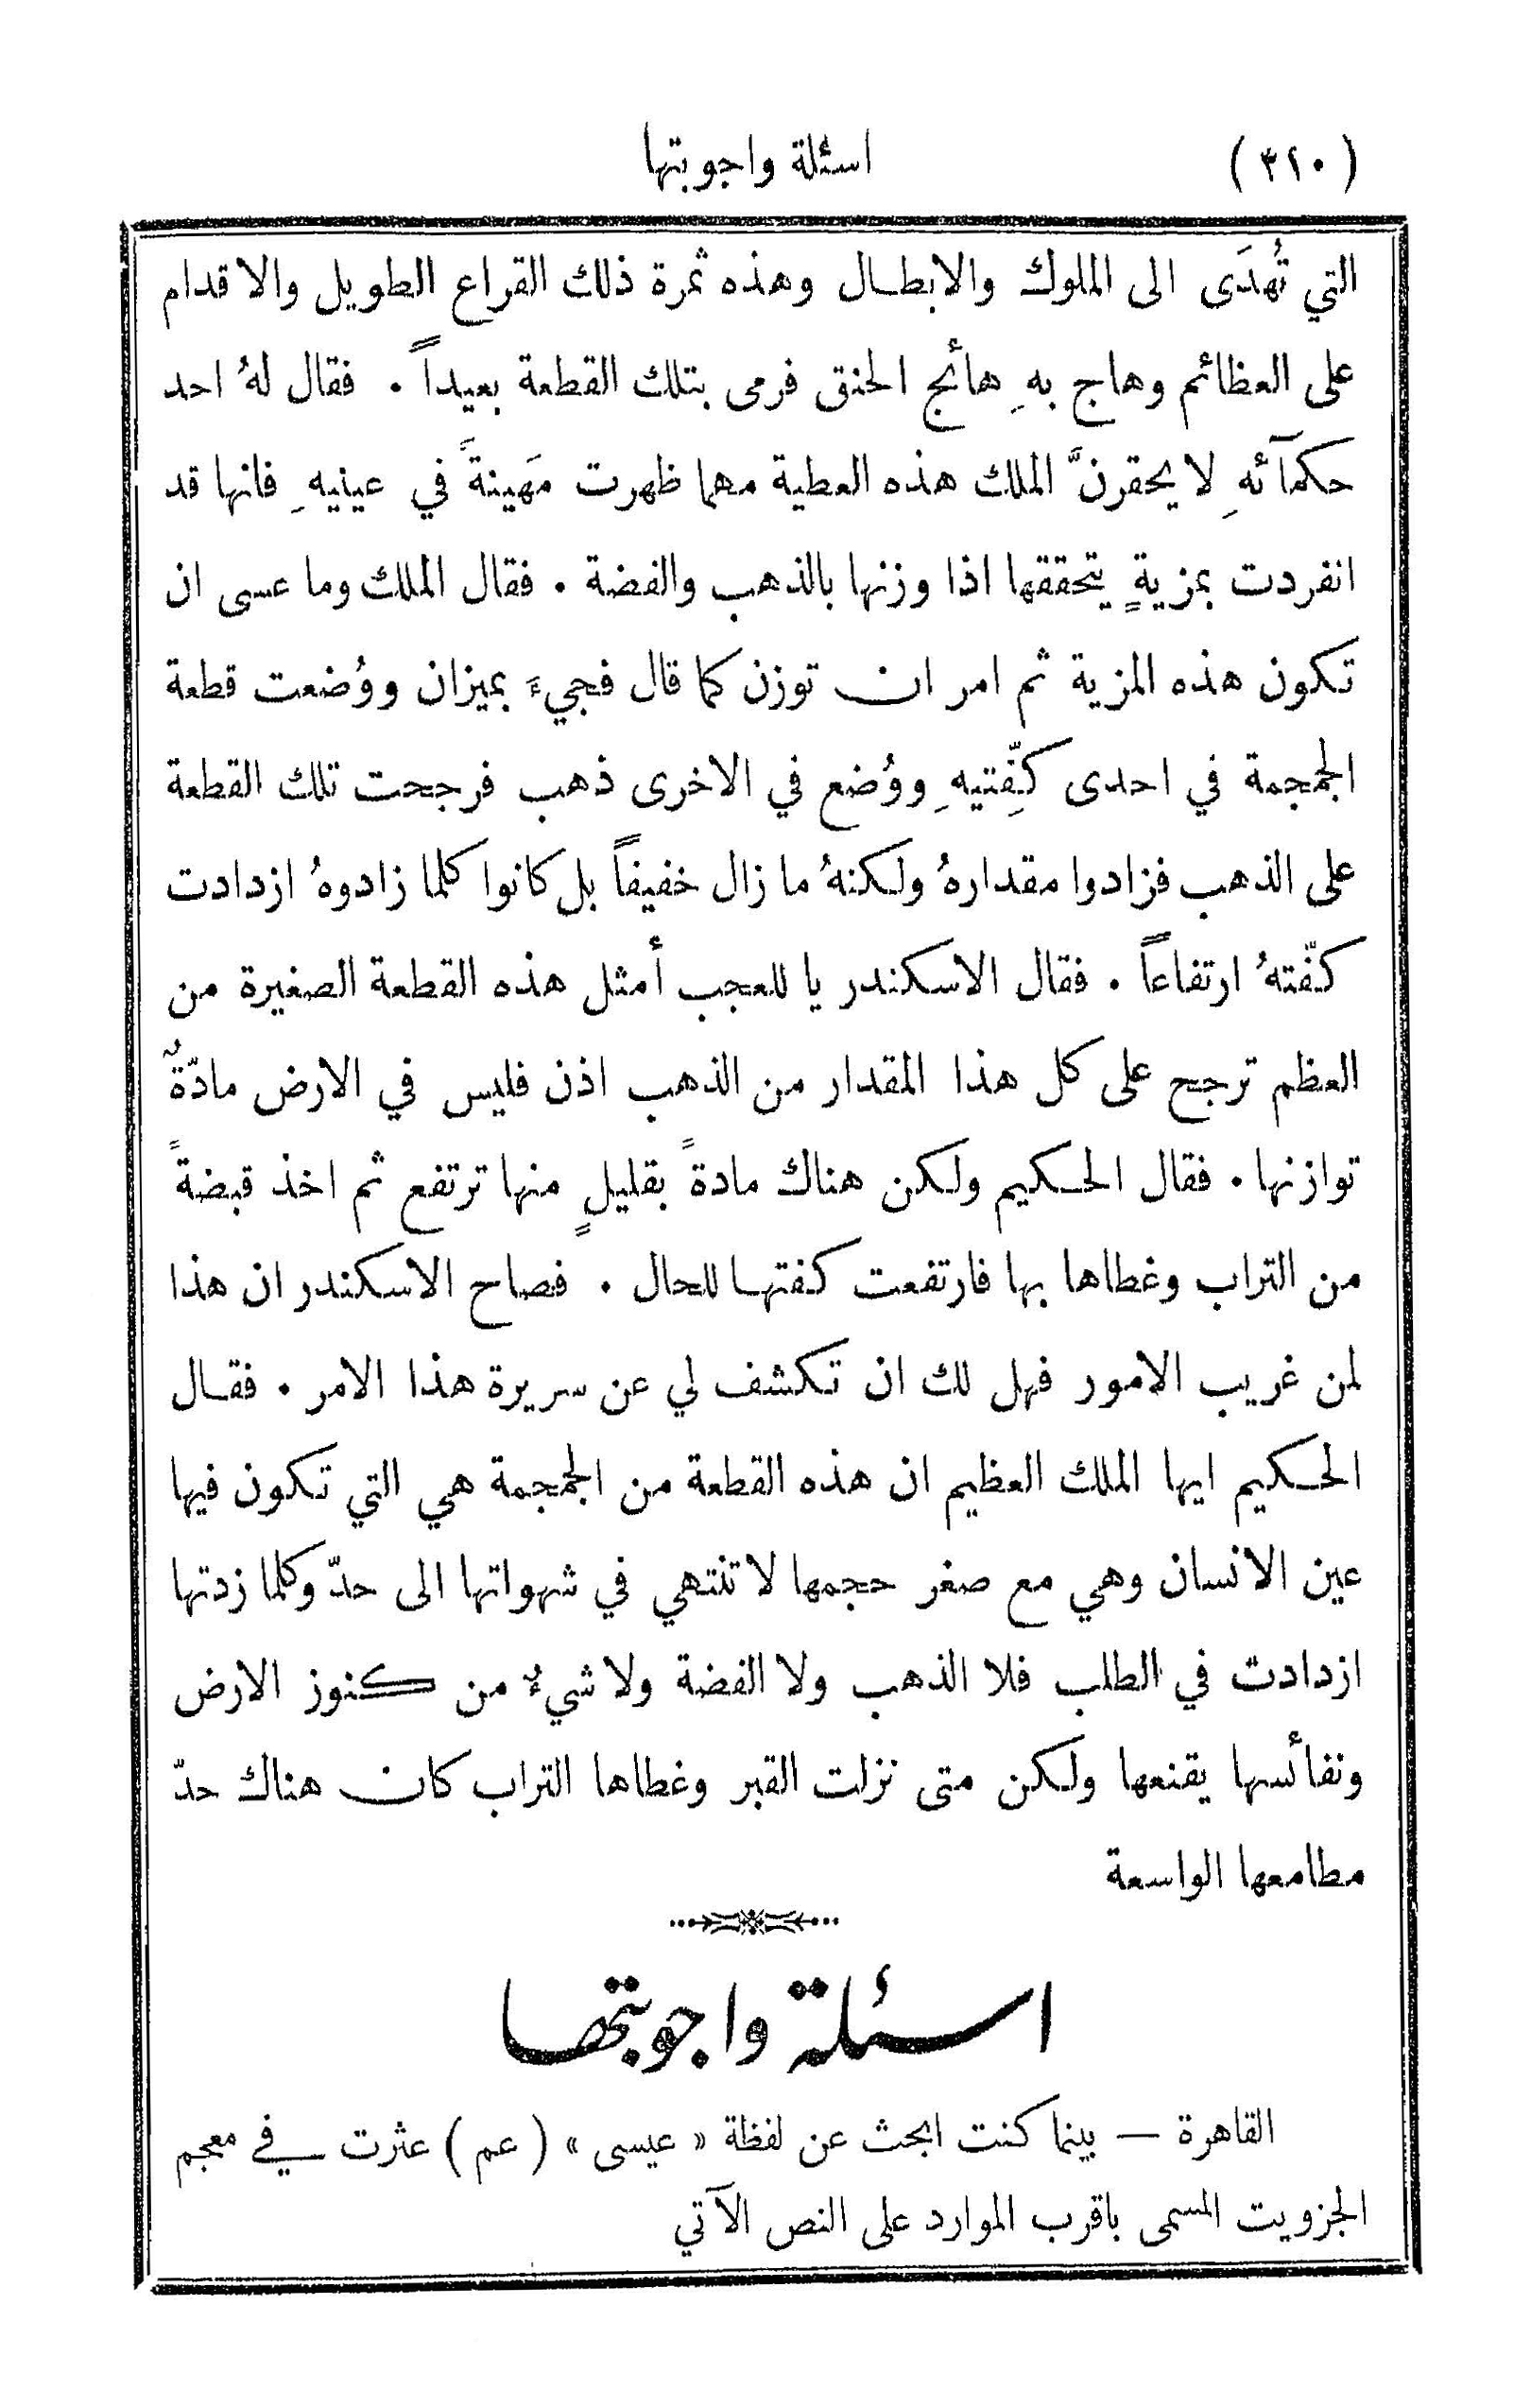 (٣٢٠) اسئلة واجوبتها
التي تُهدَى الى الملوك والابطال وهذه ثمرة ذلك القراع الطويل والاقدام
على العظائم وهاج بهِ هائج الحنق فرمى بتلك القطعة بعيداً . فقال لهُ احد
حكمآئهِ لا يحقرنَّ الملك هذه العطية مهما ظهرت مَهينةً في عينيهِ فانها قد
انفردت بمزيةٍ يتحققها اذا وزنها بالذهب والفضة . فقال الملك وما عسى ان
تكون هذه المزية ثم امر ان توزن كما قال فجيءَ بميزان ووُضعت قطعة
الجمجمة في احدى كفّتيهِ ووُضع في الاخرى ذهب فرجحت تلك القطعة
على الذهب فزادوا مقدارهُ ولكنهُ ما زال خفيفاً بل كانوا كلما زادوهُ ازدادت
كفّتهُ ارتفاعاً . فقال الاسكندر يا للعجب أمثل هذه القطعة الصغيرة من
العظم ترجح على كل هذا المقدار من الذهب اذن فليس في الارض مادّةٌ
توازنها . فقال الحكيم ولكن هناك مادةً بقليلٍ منها ترتفع ثم اخذ قبضةً
من التراب وغطاها بها فارتفعت كفتها للحال . فصاح الاسكندر ان هذا
لمن غريب الامور فهل لك ان تكشف لي عن سريرة هذا الامر . فقال
الحكيم ايها الملك العظيم ان هذه القطعة من الجمجمة هي التي تكون فيها
عين الانسان وهي مع صغر حجمها لا تنتهي في شهواتها الى حدّ وكلما زدتها
ازدادت في الطلب فلا الذهب ولا الفضة ولا شيءٌ من كنوز الارض
ونفائسها يقنعها ولكن متى نزلت القبر وغطاها التراب كان هناك حدّ
مطامعها الواسعة
اسئلة واجوبتها
القاهرة — بينما كنت ابحث عن لفظة « عيسى » ( عم ) عثرت في معجم
الجزويت المسمى باقرب الموارد على النص الآتي